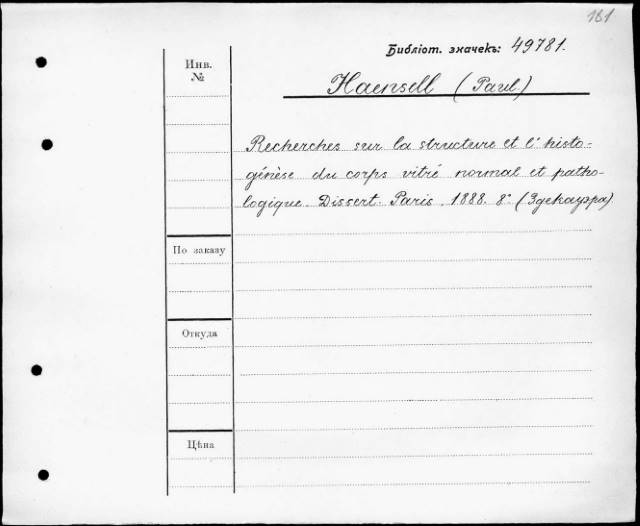 181
Библіот. значекъ: 49781.
Инв.
№
Haensell (Paul.)
Recherches sur la structure et l'histo-
génèse du corps vitré normal et patho-
logique. Dissert. Paris. 1888. 8° (Здекауэра).
По заказу
Откуда
Цѣна